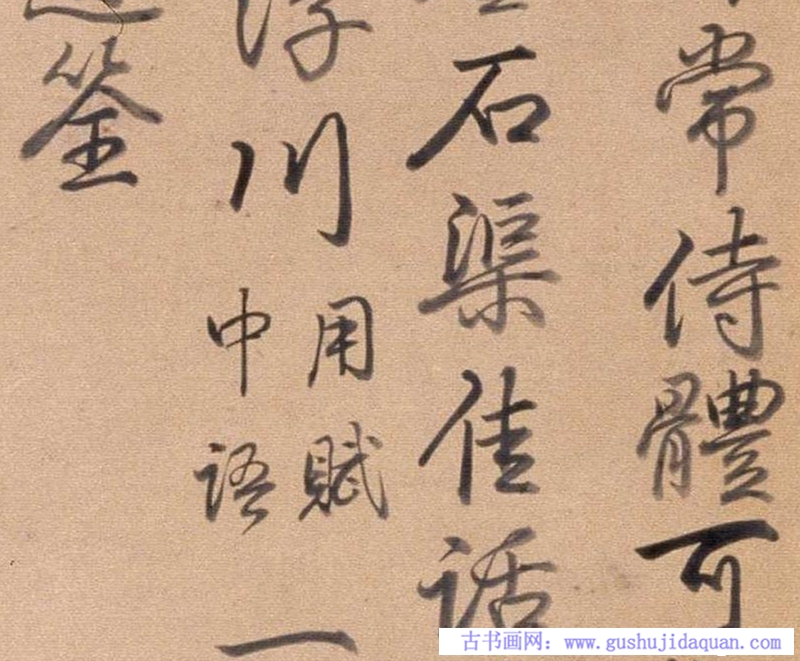 常侍體可
石渠佳話
浮川
用賦
中語
一
筌
古书画网：www.gushujidaquan.com